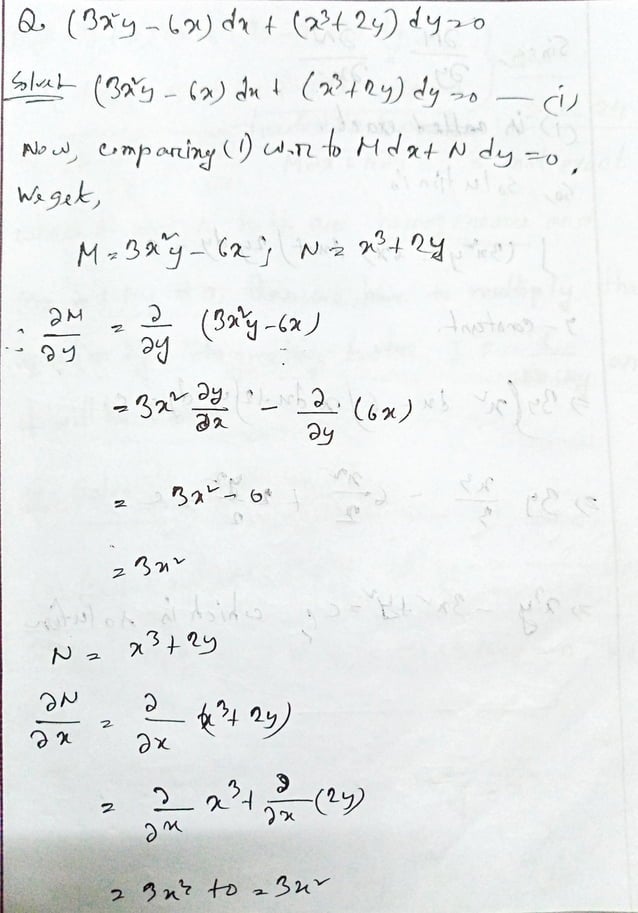 Q. (3x²y - 6x) dx + (x³ + 2y) dy = 0
Solve (3x²y - 6x) dx + (x³ + 2y) dy = 0 — (i)
Now, comparing (1) w.r. to M dx + N dy = 0.
We get,
M = 3x²y - 6x ; N = x³ + 2y
∴ ∂M/∂y = ∂/∂y (3x²y - 6x)
= 3x² ∂y/∂x - ∂/∂y (6x)
= 3x² - 0
= 3x²
N = x³ + 2y
∂N/∂x = ∂/∂x (x³ + 2y)
= ∂/∂x x³ + ∂/∂x (2y)
= 3x² + 0 = 3x²